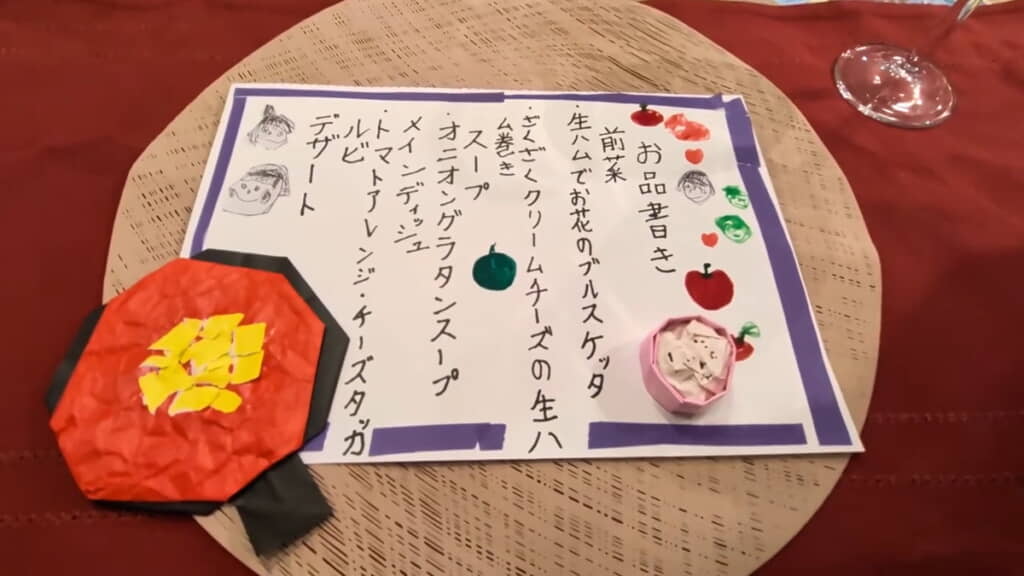 お品書き
前菜
・生ハムでお花のブルスケッタ
・ざくざくクリームチーズの生ハ
ム巻き
スープ
・オニオングラタンスープ
メインディッシュ
・トマトアレンジ・チーズタッカ
ルビ
デザート